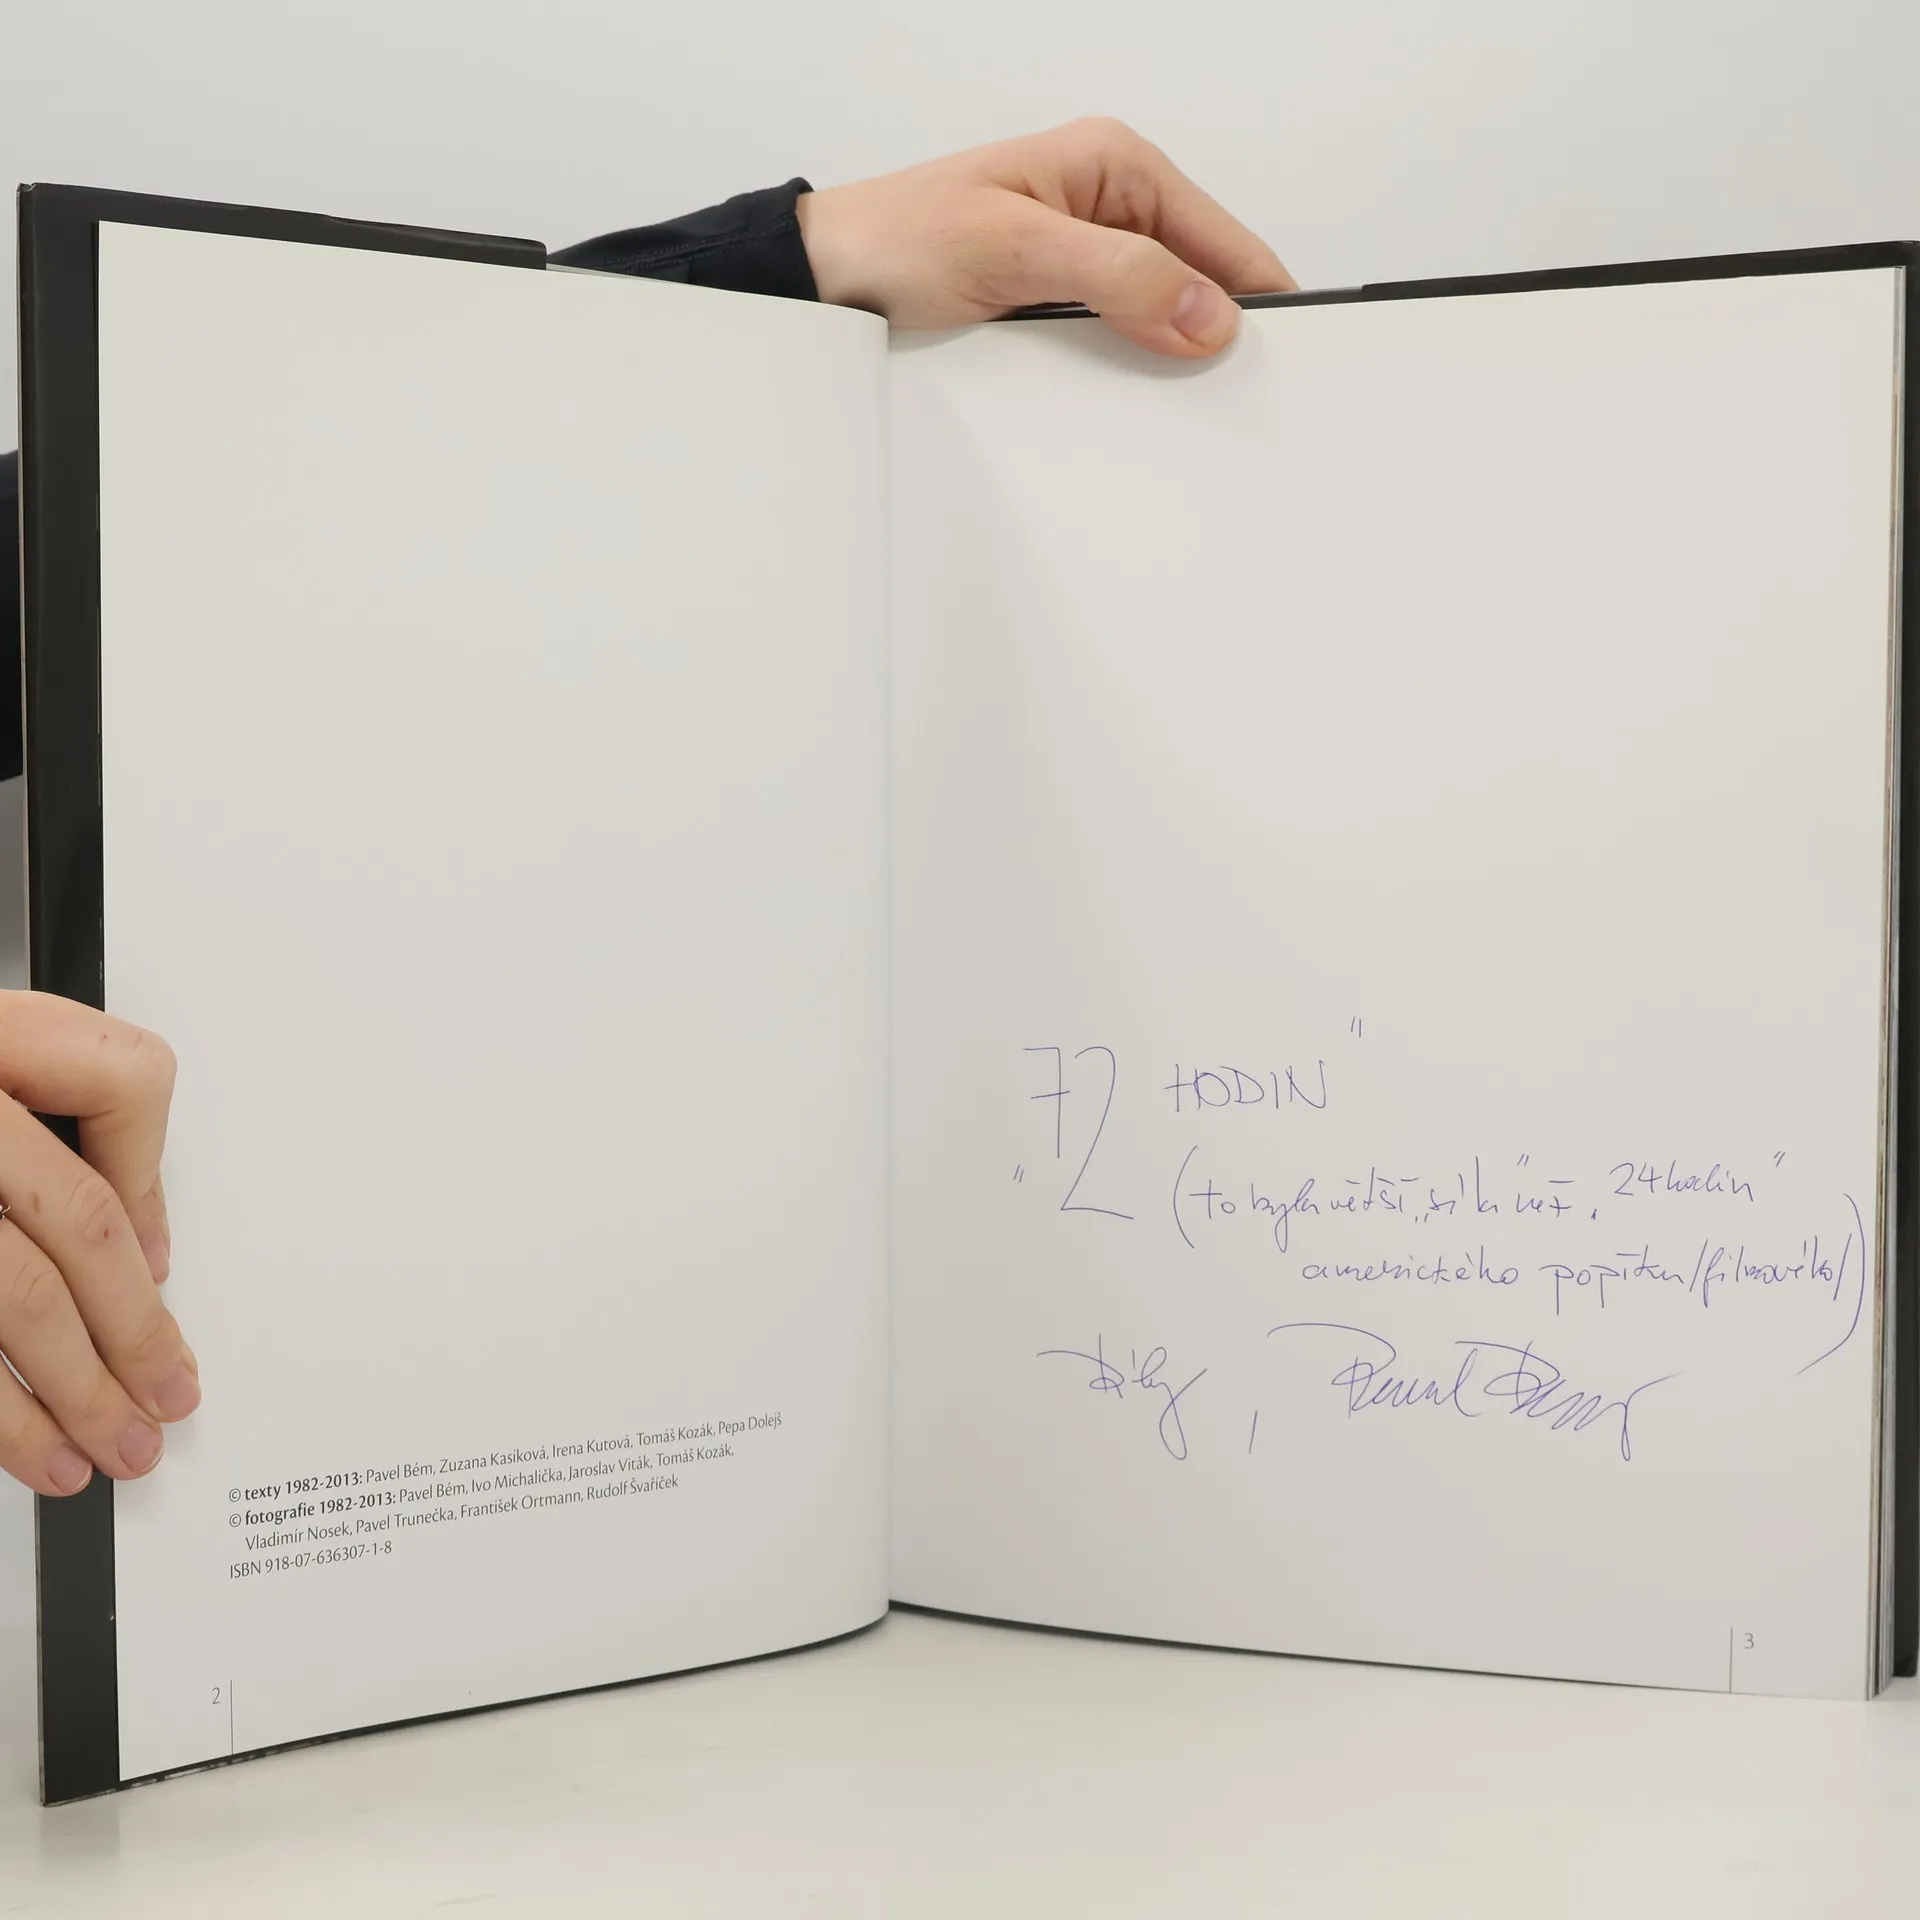 © texty 1982-2013: Pavel Bém, Zuzana Kasíková, Irena Kutová, Tomáš Kozák, Pepa Dolejš
© fotografie 1982-2013: Pavel Bém, Ivo Michalička, Jaroslav Viták, Tomáš Kozák,
Vladimír Nosek, Pavel Trunečka, František Ortmann, Rudolf Švaříček
ISBN 918-07-636307-1-8
2
„72 HODIN"
(to byla větší „síla" než „24 hodin"
amerického popíku/filmového/)
Díky, Pavel Bém
3